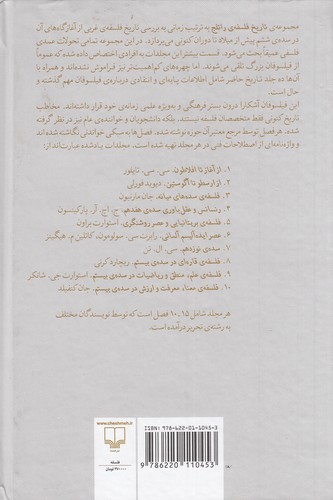 مجموعه‌ی تاریخ فلسفه‌ی راتلج به ترتیب زمانی به بررسی تاریخ فلسفه‌ی غربی از آغازگاه‌های آن
در سده‌ی ششم پیش از میلاد تا دوران کنونی می‌پردازد. در این مجموعه تمامی تحولات عمده‌ی
فلسفی عمیقاً بحث می‌شود. قسمت بیشتر این مجلدات به افرادی اختصاص داده شده که عموماً
از فیلسوفان بزرگ تلقی می‌شوند. اما چهره‌های کم‌اهمیت‌تر نیز فراموش نشده‌اند و همراه با
آن‌ها ده جلد تاریخ حاضر شامل اطلاعات پایه‌ای و انتقادی درباره‌ی فیلسوفان مهم گذشته و
حال است.
این فیلسوفان آشکارا درون بستر فرهنگی و به‌ویژه علمی زمانه‌ی خود قرار داشته‌اند. مخاطب
تاریخ کنونی فقط متخصصان فلسفه نیستند، بلکه دانشجویان و خواننده‌ی عام نیز در نظر گرفته
شده‌اند. هر فصل توسط مرجع معتبر آن حوزه نوشته شده. فصل‌ها به سبکی خوانا نگاشته شده‌اند
و واژه‌نامه‌ای از اصطلاحات فنی در هر مجلد تهیه شده است. مجلدات یادشده عبارت‌اند از:
۱. از آغاز تا افلاطون. سی. سی. تایلور
۲. از ارسطو تا آگوستین. دیوید فورلی
۳. فلسفه‌ی سده‌های میانه. جان مارنبون
۴. رنسانس و عقل‌باوری سده‌ی هفدهم. ج. اچ. آر. پارکینسون
۵. فلسفه‌ی بریتانیایی و عصر روشنگری. استوارت براون
۶. عصر ایده‌آلیسم آلمانی. رابرت سی. سولومون، کاتلین م. هیگینز
۷. سده‌ی نوزدهم. سی. ال. تن
۸. فلسفه‌ی قاره‌ای در سده‌ی بیستم. ریچارد کرنی
۹. فلسفه‌ی علم، منطق و ریاضیات در سده‌ی بیستم. استوارت جی. شانکر
۱۰. فلسفه‌ی معنا، معرفت و ارزش در سده‌ی بیستم. جان کنفیلد
هر مجلد شامل ۱۵ ـ ۱۰ فصل است که توسط نویسندگان مختلف
به رشته‌ی تحریر درآمده است.
www.cheshmeh.ir
فلسفه
ISBN: 978-622-01-1045-3
9 786220 110453